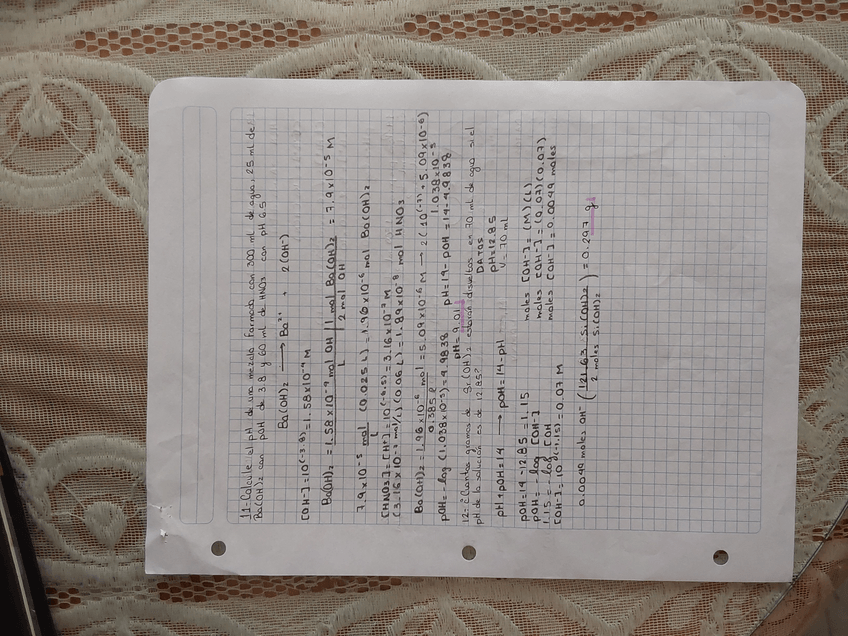 11-Calcule el pH de una mezcla formada con 300 ml de agua, 25 ml de
Ba(OH)2 con pOH de 3.8 y 60 ml de HNO3 con pH 6.5
Ba(OH)2 → Ba2+ + 2(OH-)
[OH-]=10^(-3.8)=1.58x10^-4 M
Ba(OH)2 = 1.58x10^-4 mol OH / L | 1 mol Ba(OH)2 / 2 mol OH = 7.9x10^-5 M
7.9x10^-5 mol/L (0.025 L)=1.96x10^-6 mol Ba(OH)2
[HNO3]=[H+]=10^(-6.5)=3.16x10^-7 M
(3.16x10^-7 mol/L)(0.06 L)=1.89x10^-8 mol HNO3
Ba(OH)2 = 1.96x10^-6 mol / 0.385 L = 5.09x10^-6 M → 2(10^(-7)+5.09x10^-6)
1.038x10^-5
pOH=-log(1.038x10^-5)=4.9838 pH=14-pOH=14-4.9838
pH=9.01
12-¿Cuántos gramos de Sr(OH)2 estarán disueltos en 70 ml de agua si el
pH de la solución es de 12.85?
DATOS
pH=12.85
V=70 ml
pH+pOH=14 → pOH=14-pH
pOH=14-12.85=1.15
pOH=-log[OH-]
1.15=-log[OH
[OH-]=10^(-1.15)=0.07 M
moles [OH-]=(M)(L)
moles [OH-]=(0.07)(0.07)
moles [OH-]=0.0049 moles
0.0049 moles OH- (121.63 Sr(OH)2 / 2 moles Sr(OH)2)=0.297 g